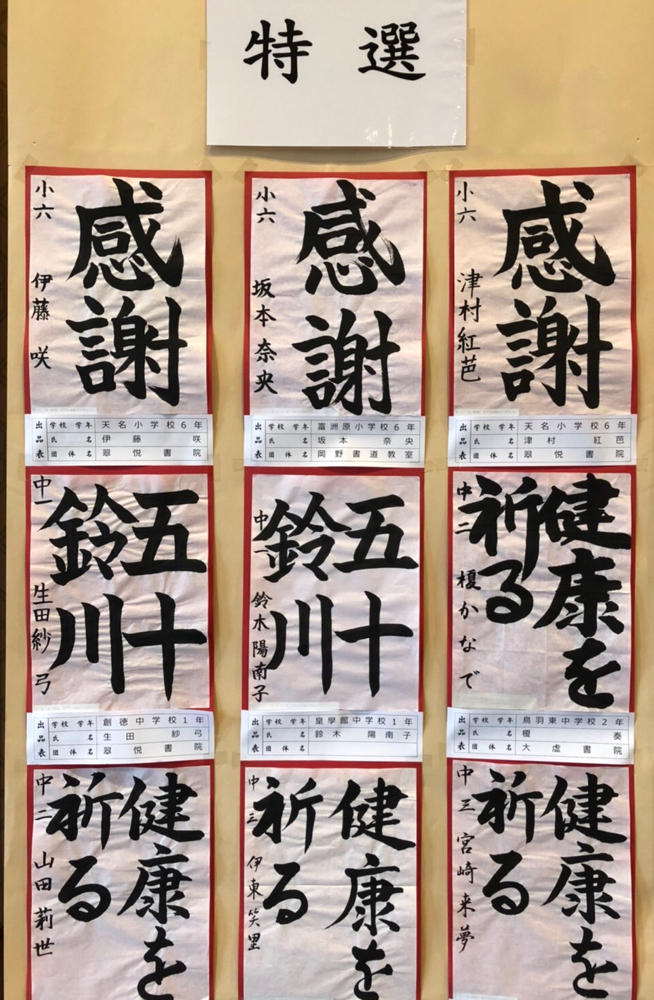 特選
感謝
小六 津村紅芭
出品表
学校 学年 天名小学校6年
氏名 津村 紅芭
団体名 翠悦書院
感謝
小六 坂本奈央
出品表
学校 学年 富洲原小学校6年
氏名 坂本 奈央
団体名 岡野書道教室
感謝
小六 伊藤咲
出品表
学校 学年 天名小学校6年
氏名 伊藤 咲
団体名 翠悦書院
健康を
祈る
中二 榎かなで
出品表
学校 学年 鳥羽東中学校2年
氏名 榎 奏
団体名 大虚書院
五十
鈴川
中一 鈴木陽南子
出品表
学校 学年 皇學館中学校1年
氏名 鈴木 陽南子
団体名
五十
鈴川
中一 生田紗弓
出品表
学校 学年 創徳中学校1年
氏名 生田 紗弓
団体名 翠悦書院
健康を
祈る
中三 宮崎来夢
健康を
祈る
中三 伊東笑里
健康を
祈る
中二 山田莉世